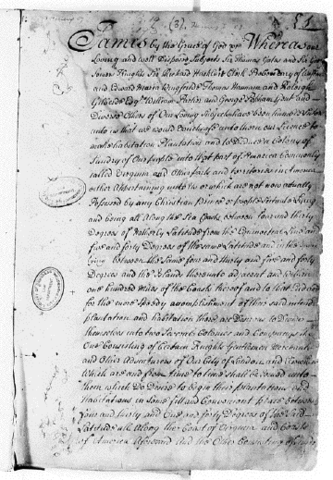 (3)
James by the Grace of God &c Whereas our
Loving and well Disposed Subjects Sir Thomas Gates and Sir George
Somers Knights Sir Richard Hackluit Clerk Prebendary of
and Edward Maria Wingfield Thomas Hannum and Raleigh
Gilberde Esqrs William Parker and George Popham Gent and
Divers Others of Our Loving Subjects have been humble
unto us that we would vouchsafe unto them our Licence to
make habitation Plantation and to Deduce a Colony of
Sundry of Our People into that part of America Commonly
called Virginia and Other parts and territories in America
either Appertaining unto Us or which are not now actually
Possessed by any Christian Prince or People Scituate Lying
and being all Along the Sea Coasts between four and thirty
Degrees of Northerly Latitude from the Equinoctial Line and
five and forty Degrees of the same Latitude and in the
Between the same four and thirty and five and forty
Degrees and the Islands thereunto adjacent or within
one hundred Miles of the Coasts thereof and to that End and
for the more Speedy accomplishment of their said intended
plantation and habitation there are Desirous to Divide
themselves into two Several Colonies and Companys the
One Consisting of Certain Knights Gentlemen Merchants
and Other Adventurers of Our City of London and
Which are and from time to time shall be Joined unto
them which do Desire to begin their plantations and
Habitations in Some fitt and Convenient place between
four and thirty and One and forty Degrees of the Said
Latitude all Along the Coast of Virginia and Coasts
of America Aforesaid and the Other Consisting of